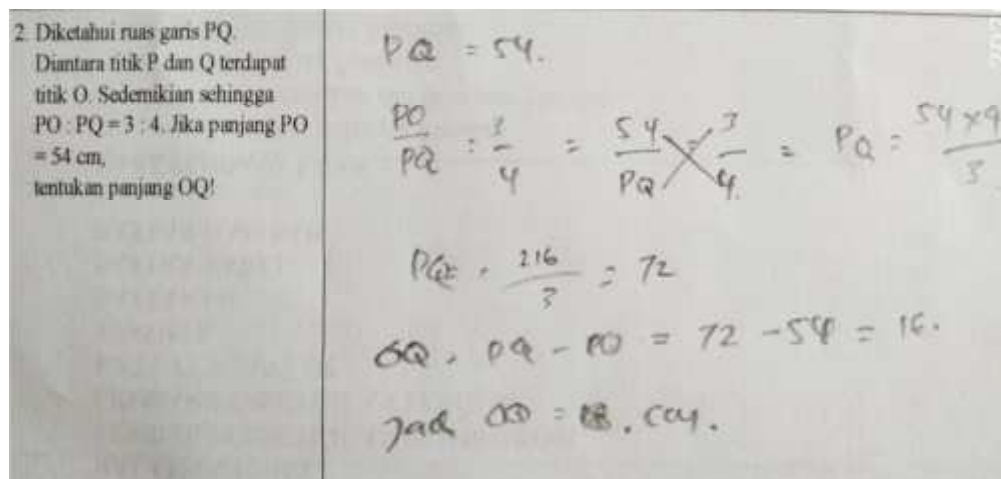 2. Diketahui ruas garis PQ.
Diantara titik P dan Q terdapat
titik O. Sedemikian sehingga
PO : PQ = 3 : 4. Jika panjang PO
= 54 cm,
tentukan panjang OQ!
PQ = 54.
PO/PQ : 3/4 = 54/PQ = 3/4. = PQ = 54×4/3
PQ = 216/3 = 72
OQ = PQ - PO = 72 - 54 = 16.
Jadi OQ = 18. cm.